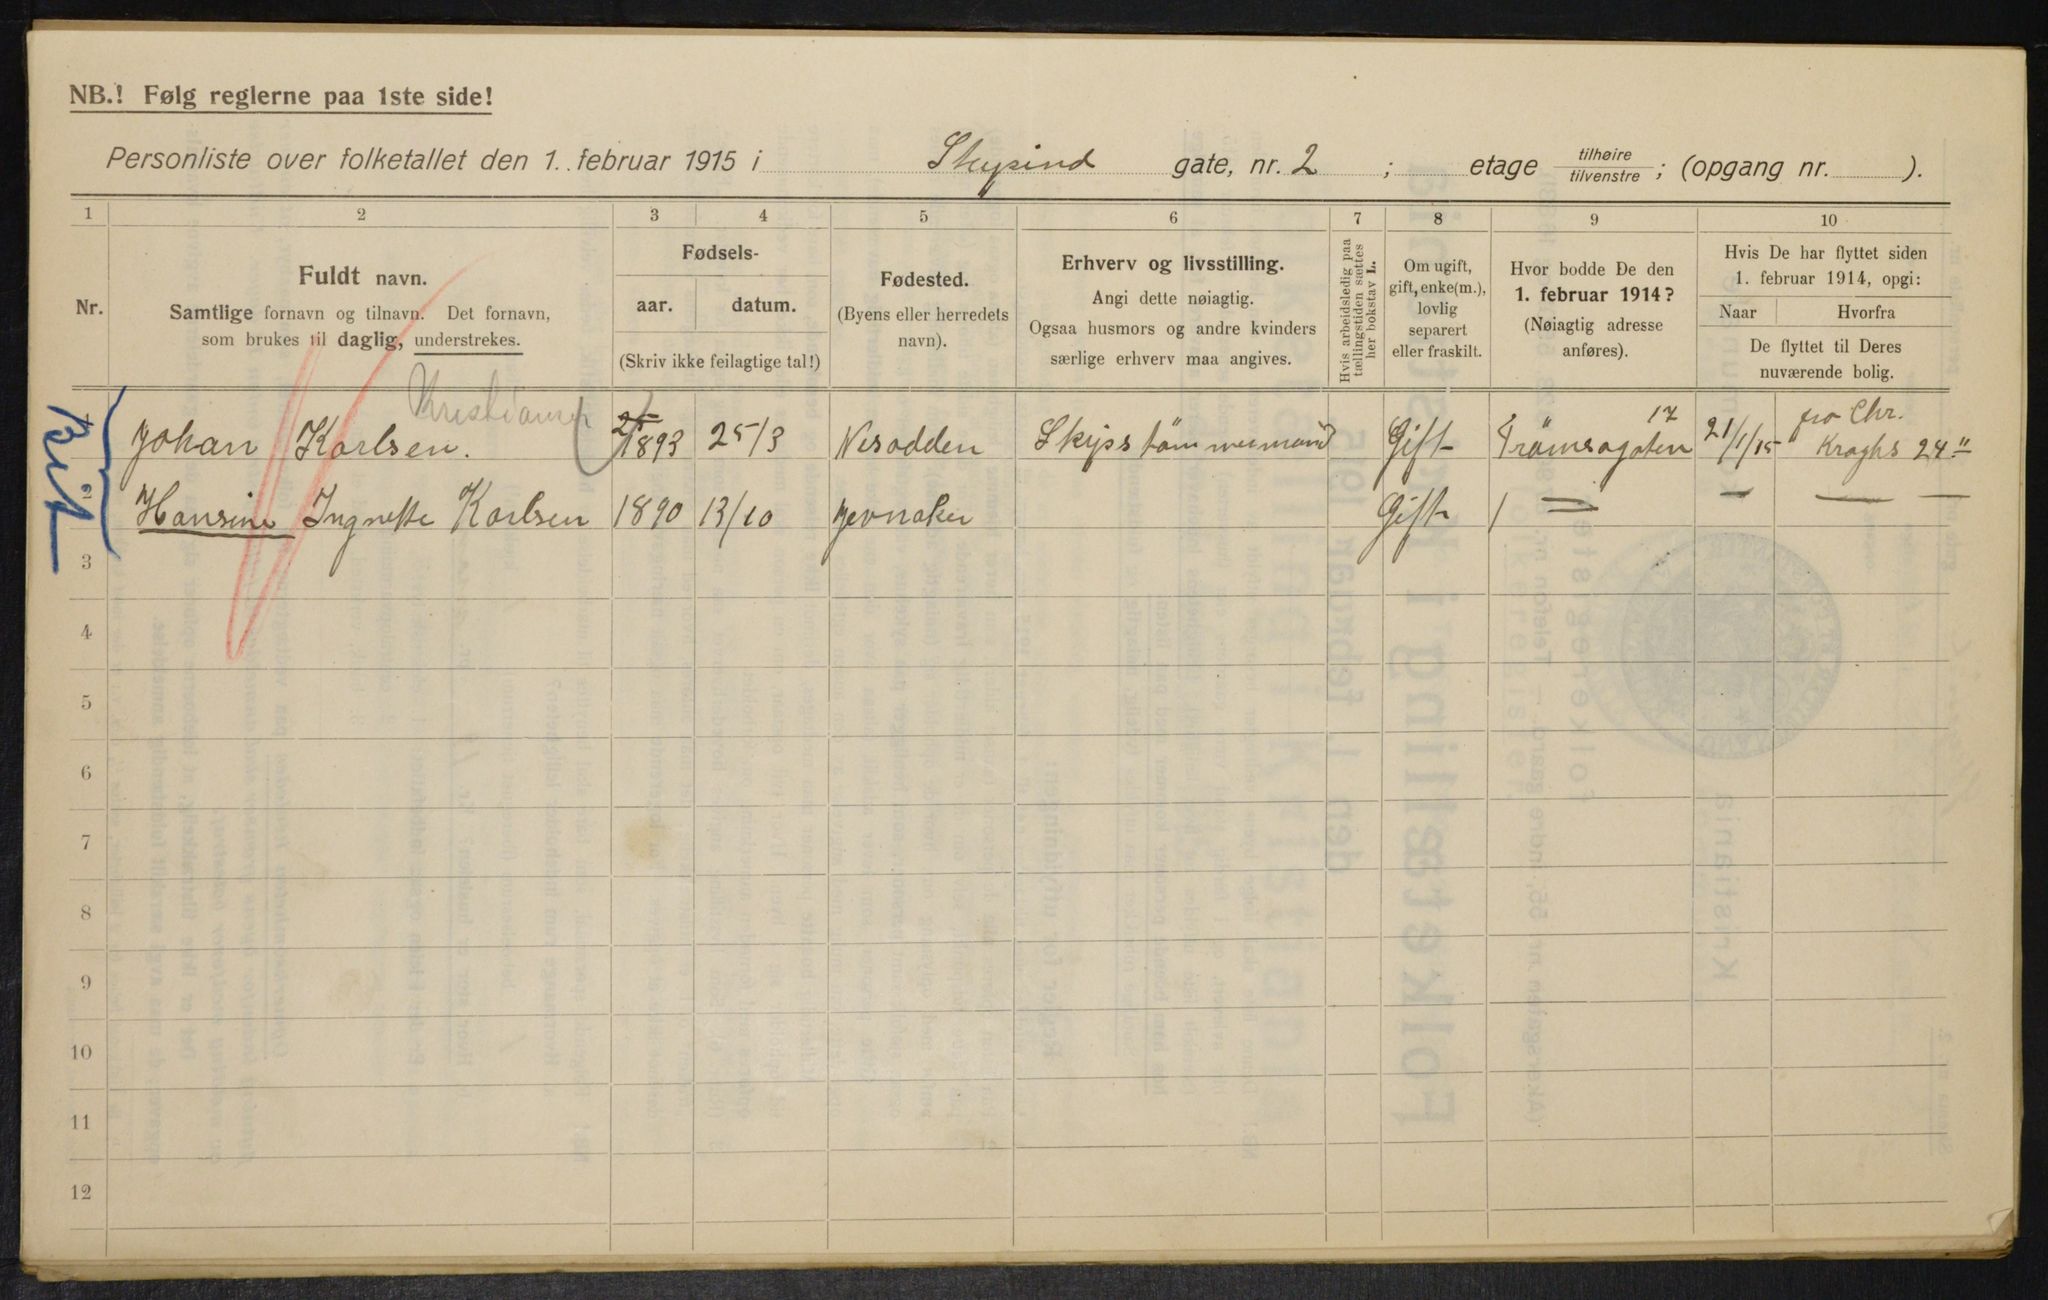 NB.! Følg reglerne paa 1ste side!
Personliste over folketallet den 1. februar 1915 i Skysind gate, nr. 2 ; etage tilhøire tilvenstre ; (opgang nr. ).
1 2 3 4 5 6 7 8 9 10
Nr.
Fuldt navn.
Samtlige fornavn og tilnavn. Det fornavn,
som brukes til daglig, understrekes.
Fødsels-
aar. datum.
(Skriv ikke feilagtige tal!)
Fødested.
(Byens eller herredets
navn).
Erhverv og livsstilling.
Angi dette nøiagtig.
Ogsaa husmors og andre kvinders
særlige erhverv maa angives.
Hvis arbeidsledig paa
tællingstiden sættes
her bokstav L.
Om ugift,
gift, enke(m.),
lovlig
separert
eller fraskilt.
Hvor bodde De den
1. februar 1914?
(Nøiagtig adresse
anføres).
Hvis De har flyttet siden
1. februar 1914, opgi:
Naar Hvorfra
De flyttet til Deres
nuværende bolig.
1 Johan Karlsen. 1893 25/3 Nesodden Skipstømmermand Gift Tromsøgaten 17 21/1/15 fra Chr. Kraghs 24
2 Hansine Ingnette Karlsen 1890 13/10 Jevnaker Gift
3
4
5
6
7
8
9
10
11
12